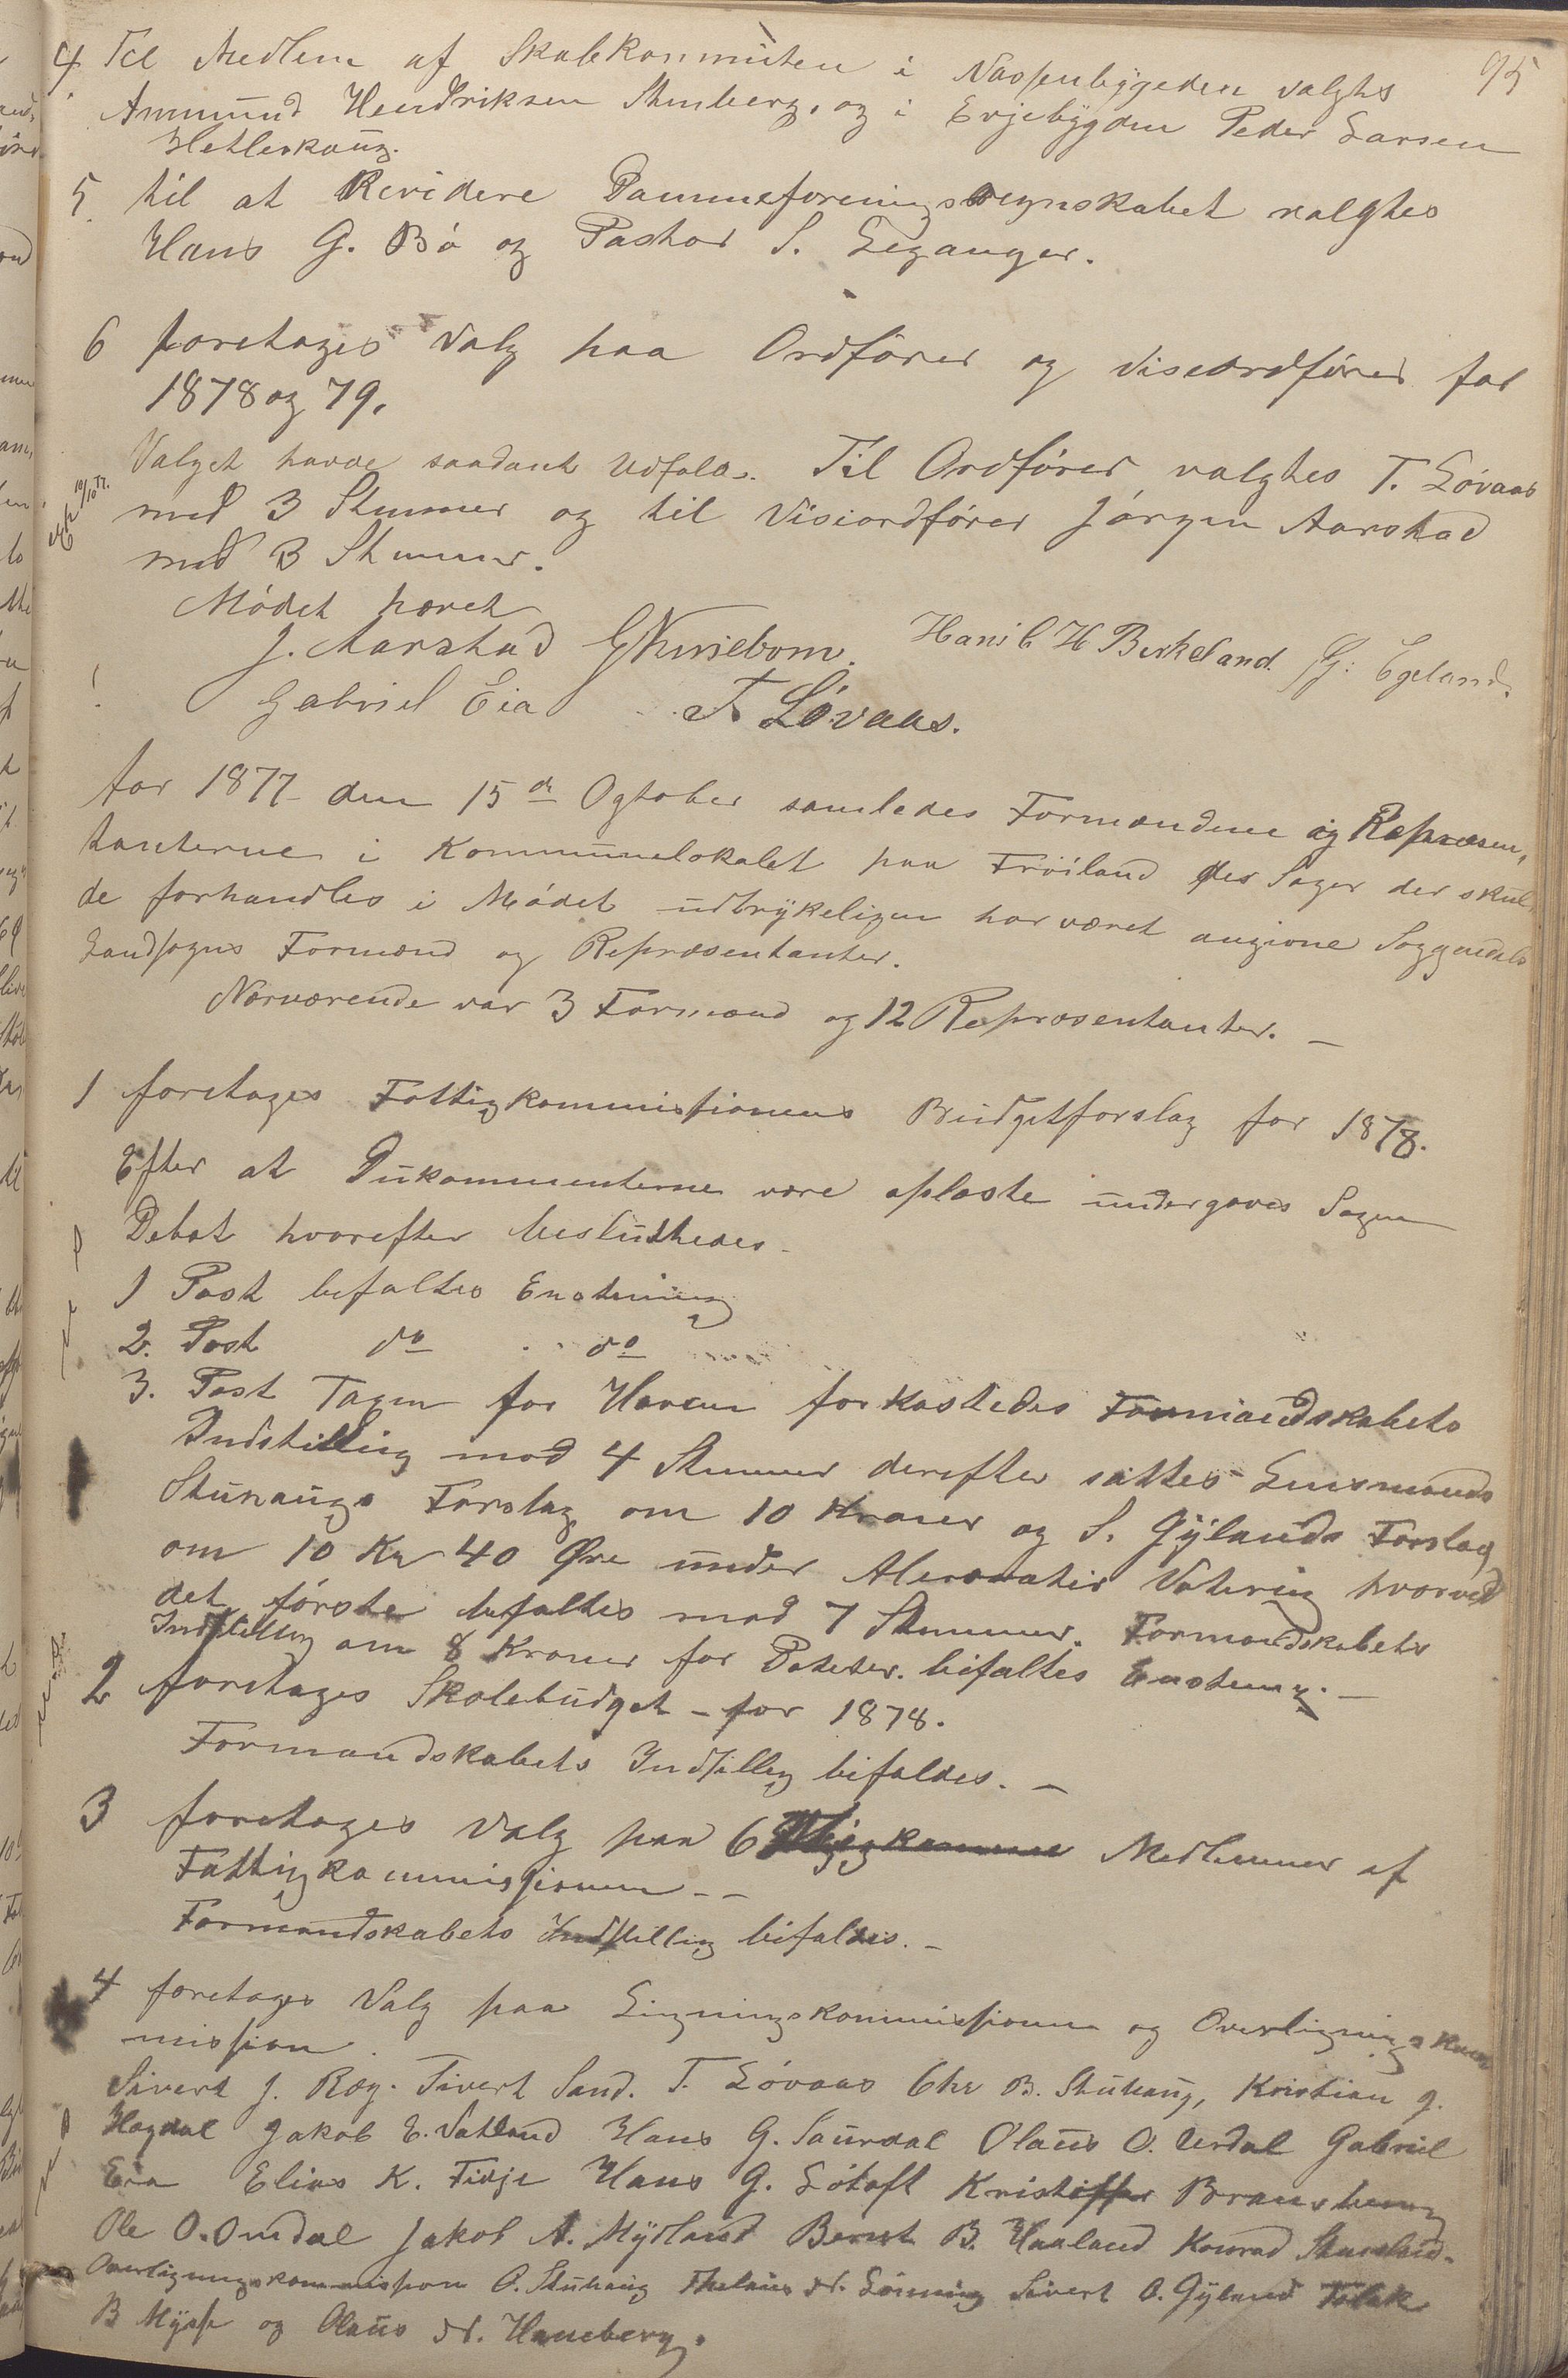 95
4. Til Medlem af Skolekommisten i Nassenbygeden valgtes
Ammund Hendriksen Stenberg, og i Evjebygden Peder Larsen
Hetleskoug.
5. til at Revidere Dammeforeningsregnskabet valgtes
Hans G. Bö og Pastor S. Leganger.
6 foretages Valg paa Ordförer og Viseordförer for
1878 og 79.
Valget havde saadant Udfald. Til Ordförer valgtes T. Lövaas
med 3 Stemmer og til Visiordförer Jörgen Aarstad
med 3 Stemmer.
Mödet hævet
J. Aarstad Hans C H Birkeland. G: Egeland.
Gabriel Eia T Lövaas.
Aar 1877 den 15de Ogtober samledes Formændene og Repræsen,
tanterne i Kommunelokalet paa Fröiland des Sager der skul,
de forhandles i Mödet udtrykeligen har været angivne Soggndals
Landsogns Formænd og Repræsentanter.
Nærværende var 3 Formænd og 12 Repræsentanter. —
1 foretages Fattigkommissionens Budgetforslag for 1878.
Efter at Dukommenterne være oplæste undergaves Sagen
Debat hvorefter besluttedes.
1 Post bifaltes Enstemig
2. Post do do
3. Post Tagen for Haven forkastedes Formandskabets
Indstilling mod 4 Stemmer derefter sattes Lensmands
Stuhaugs Forslag om 10 Kroner og S. Gylands Forslag
om 10 Kr 40 Øre under Alternativ Votering hvorved
det förste bifaltes mod 7 Stemmer. Formandskabets
Indstilling om 8 Kroner for Poteter. bifaltes Enstemg. —
2 foretages Skolebudget – for 1878.
Formandskabets Indstilling bifaldes. —
3 foretages Valg paa 6 Medlemmer af
Fattigkommissionen - -
Formandskabets Indstilling bifaldes. —
4 foretages Valg paa Ligningskommissionen og Overlignings Kom
mission.
Sivert J. Røg. Sivert Sand. T. Lövaas Chr B. Stuhaug, Kristian J.
Hogdal Jakob E. Vatland Hans G. Saurdal Olaus O. Urdal Gabriel
Eia Elias K. Tisje Hans G. Lötoft Kristoffer
Ole O. Omdal Jakob A. Mydland Bernt B. Haaland Konrad
Overligningskommission O. Stuhaug Sivert O. Gyland Tolak
B Mysse og Olaus N. Haneberg.